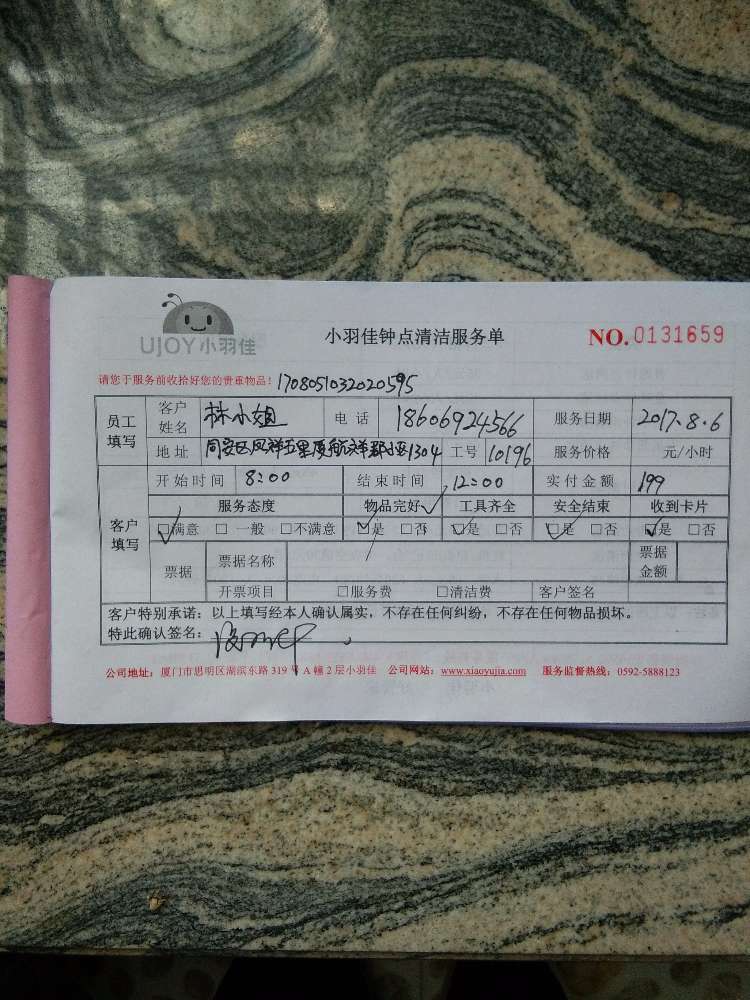 UJOY小羽佳
小羽佳钟点清洁服务单
NO.0131659
请您于服务前收拾好您的贵重物品！1708051032020595
员工填写 客户姓名 林小姐 电话 18606924566 服务日期 2017.8.6
地址 同安区凤祥五里厦航洋郡小区1304 工号 10196 服务价格 元/小时
客户填写 开始时间 8:00 结束时间 12:00 实付金额 199
服务态度 物品完好 工具齐全 安全结束 收到卡片
☑满意 □一般 □不满意 ☑是 □否 ☑是 □否 ☑是 □否 ☑是 □否
票据 票据名称 票据金额
开票项目 □服务费 □清洁费 客户签名
客户特别承诺：以上填写经本人确认属实，不存在任何纠纷，不存在任何物品损坏。
特此确认签名：
公司地址：厦门市思明区湖滨东路319号A幢2层小羽佳 公司网站：www.xiaoyujia.com 服务监督热线：0592-5888123